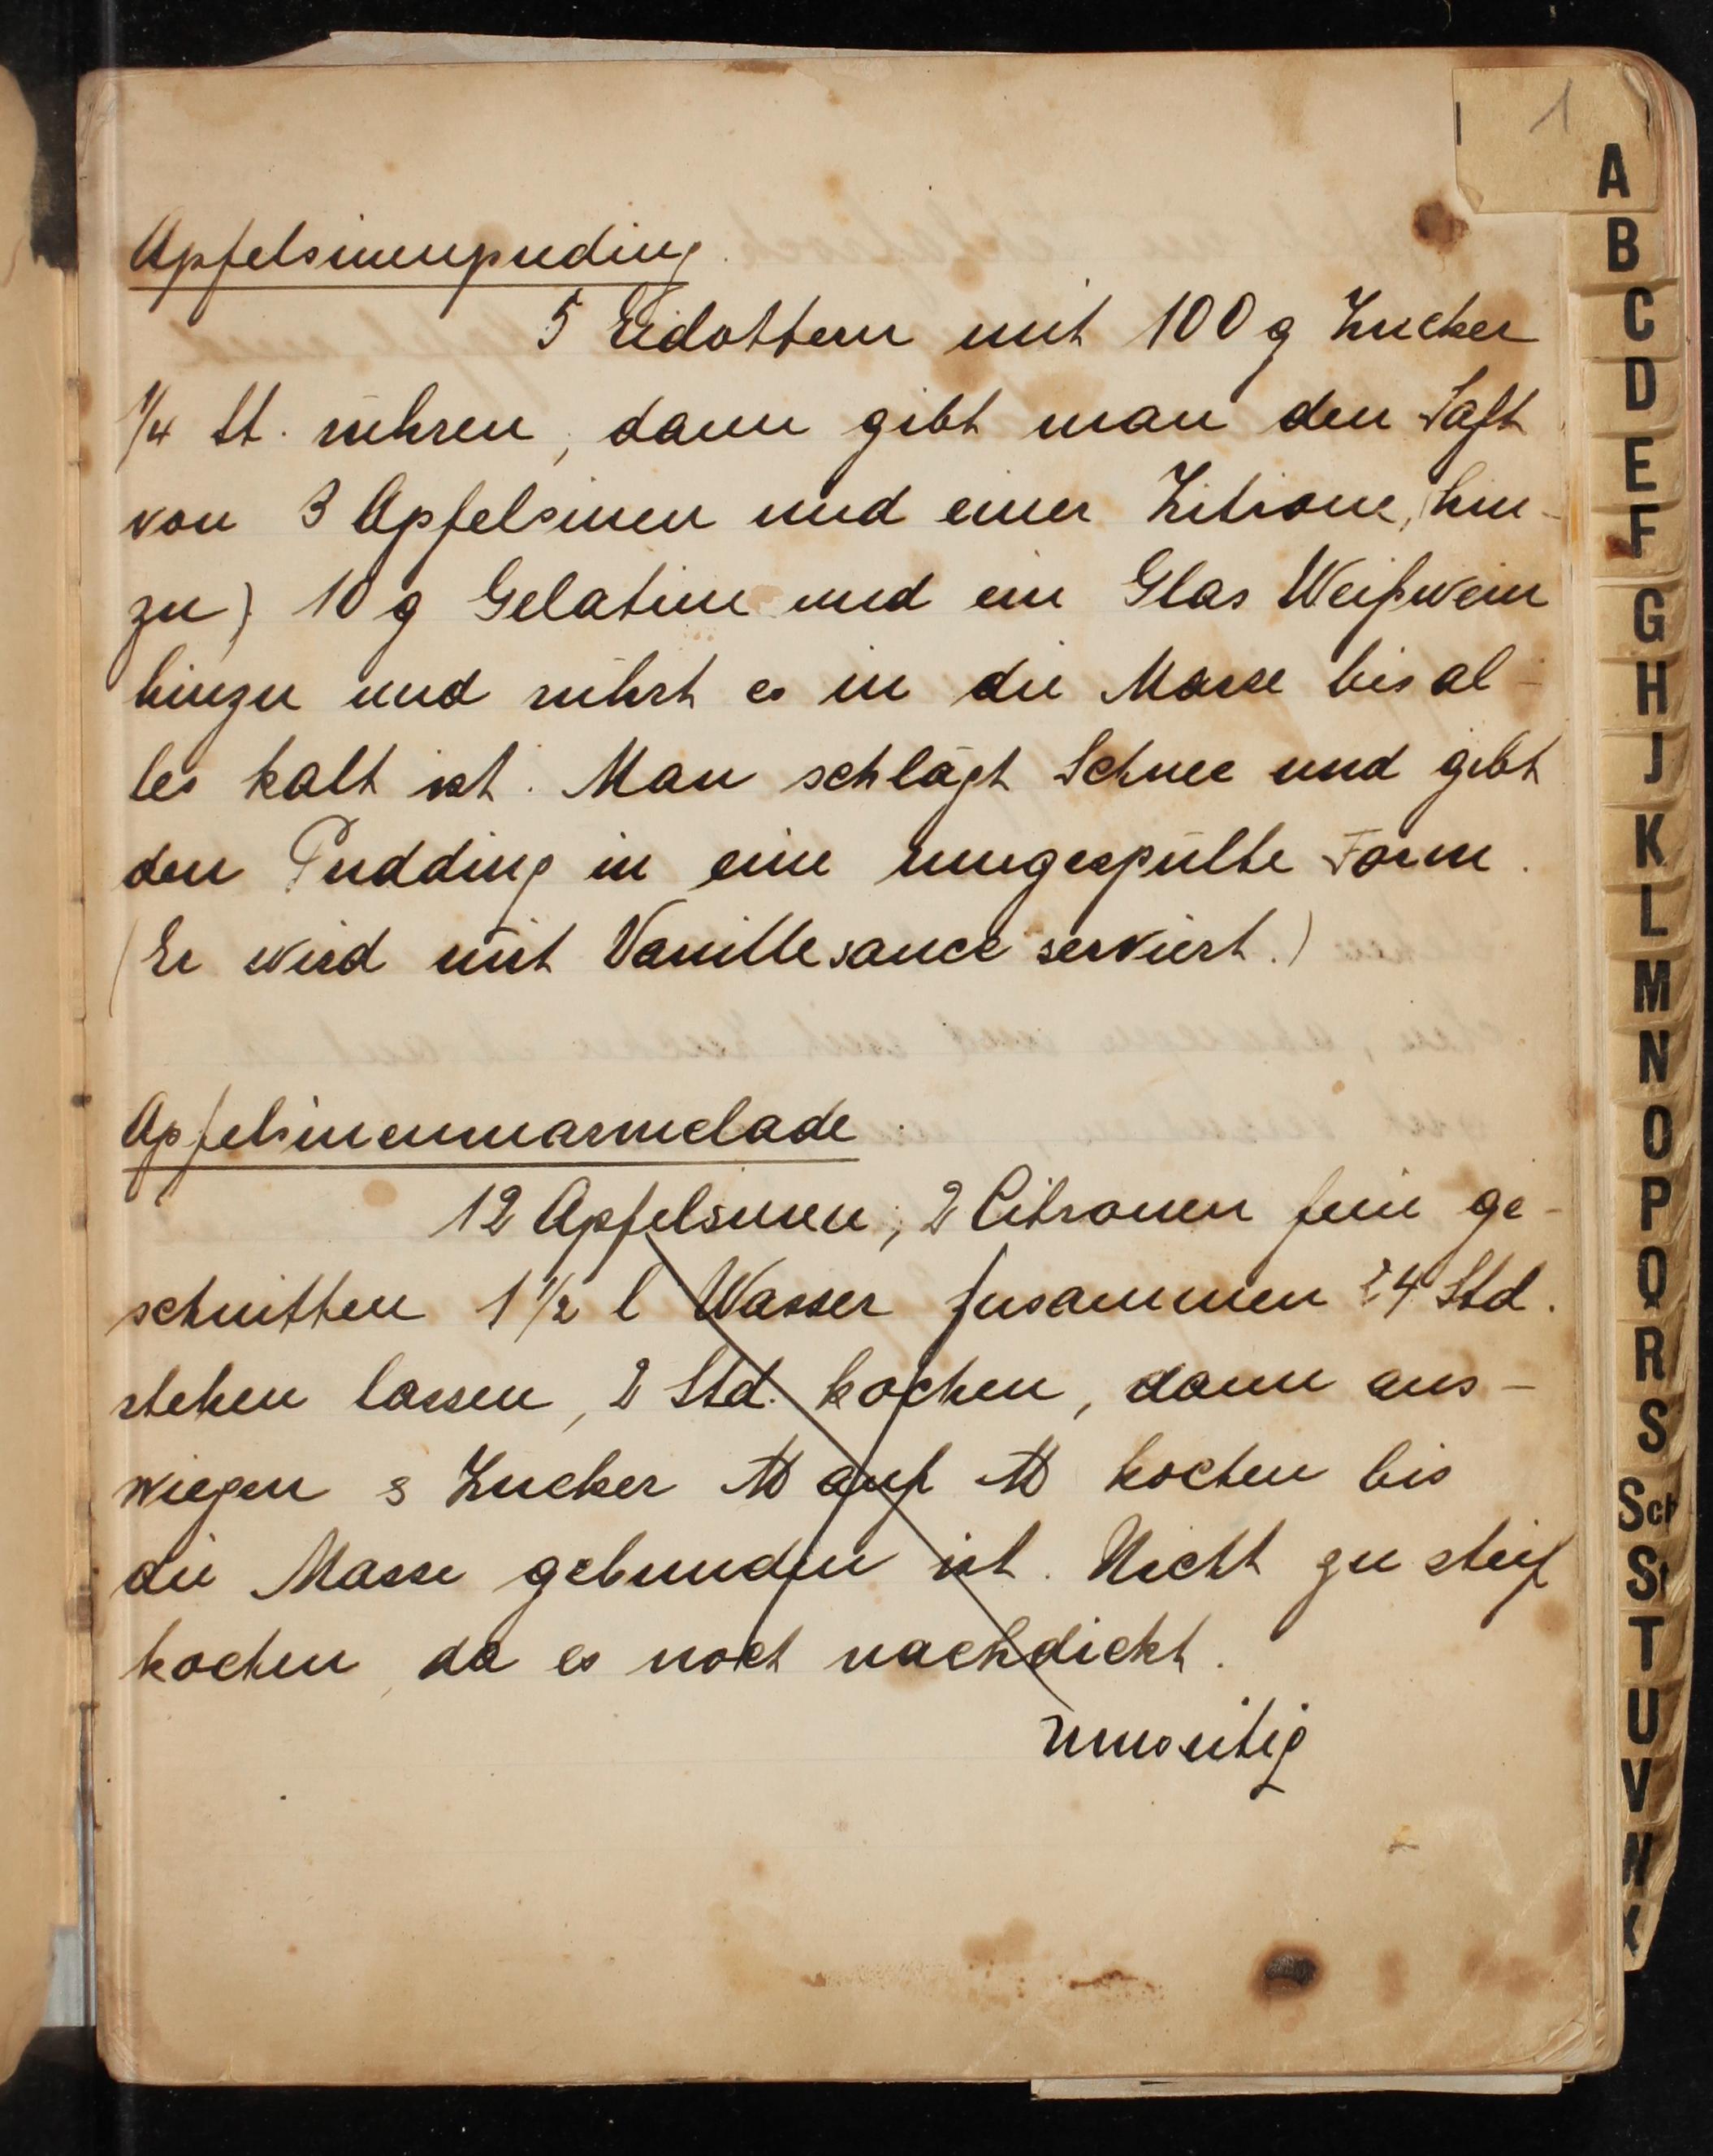 1
Apfelsinenpuding.
5 Eidottern mit 100 g Zucker
1/4 St. rühren, dann gibt man den Saft
von 3 Apfelsinen und einer Zitrone, (hin-
zu) 10 g Gelatine und ein Glas Weißwein
hinzu und rührt es in die Masse bis al-
les kalt ist. Man schlägt Schnee und gibt
den Pudding in eine umgespülte Form.
(Er wird mit Vanillesauce serviert.)
Apfelsinenmarmelade.
12 Apfelsinen, 2 Citronen fein ge-
schnitten 1 1/2 l Wasser zusammen 24 Std.
stehen lassen, 2 Std. kochen, dann aus-
wiegen & Zucker ℔ auf ℔ kochen bis
die Masse gebunden ist. Nicht zu steif
kochen, da es nocht nachdickt.
umseitig
A
B
C
D
E
F
G
H
J
K
L
M
N
O
P
Q
R
S
Sch
St
T
U
V